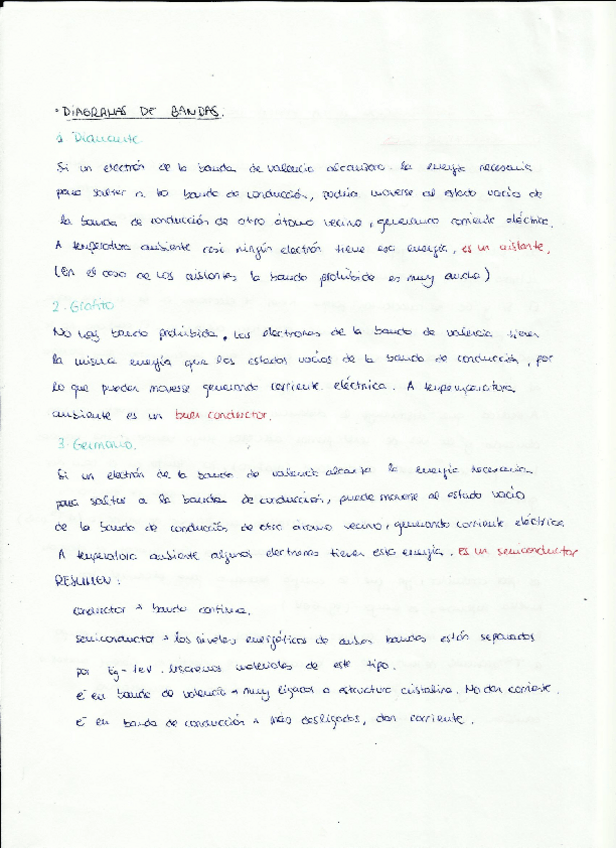 · DIAGRAMAS DE BANDAS.
1 Diamante.
Si un electrón de la banda de valencia alcanzara la energía necesaria
para saltar a la banda de conducción, podría moverse al estado vacío de
la banda de conducción de otro átomo vecino, generando corriente eléctrica.
A temperatura ambiente casi ningún electrón tiene esa energía, es un aislante.
(En el caso de los aislantes la banda prohibida es muy ancha)
2. Grafito
No hay banda prohibida, los electrones de la banda de valencia tienen
la misma energía que los estados vacíos de la banda de conducción, por
lo que pueden moverse generando corriente eléctrica. A temperatura
ambiente es un buen conductor.
3. Germanio.
Si un electrón de la banda de valencia alcanza la energía necesaria
para saltar a la banda de conducción, puede moverse al estado vacío
de la banda de conducción de otro átomo vecino, generando corriente eléctrica
A temperatura ambiente algunos electrones tienen esta energía. es un semiconductor
RESUMEN:
conductor → banda continua.
semiconductor → los niveles energéticos de ambas bandas están separados
por Eg ~ 1eV. Usaremos materiales de este tipo.
e⁻ en banda de valencia → muy ligados a estructura cristalina. No dan corriente.
e⁻ en banda de conducción → más desligados, dan corriente.